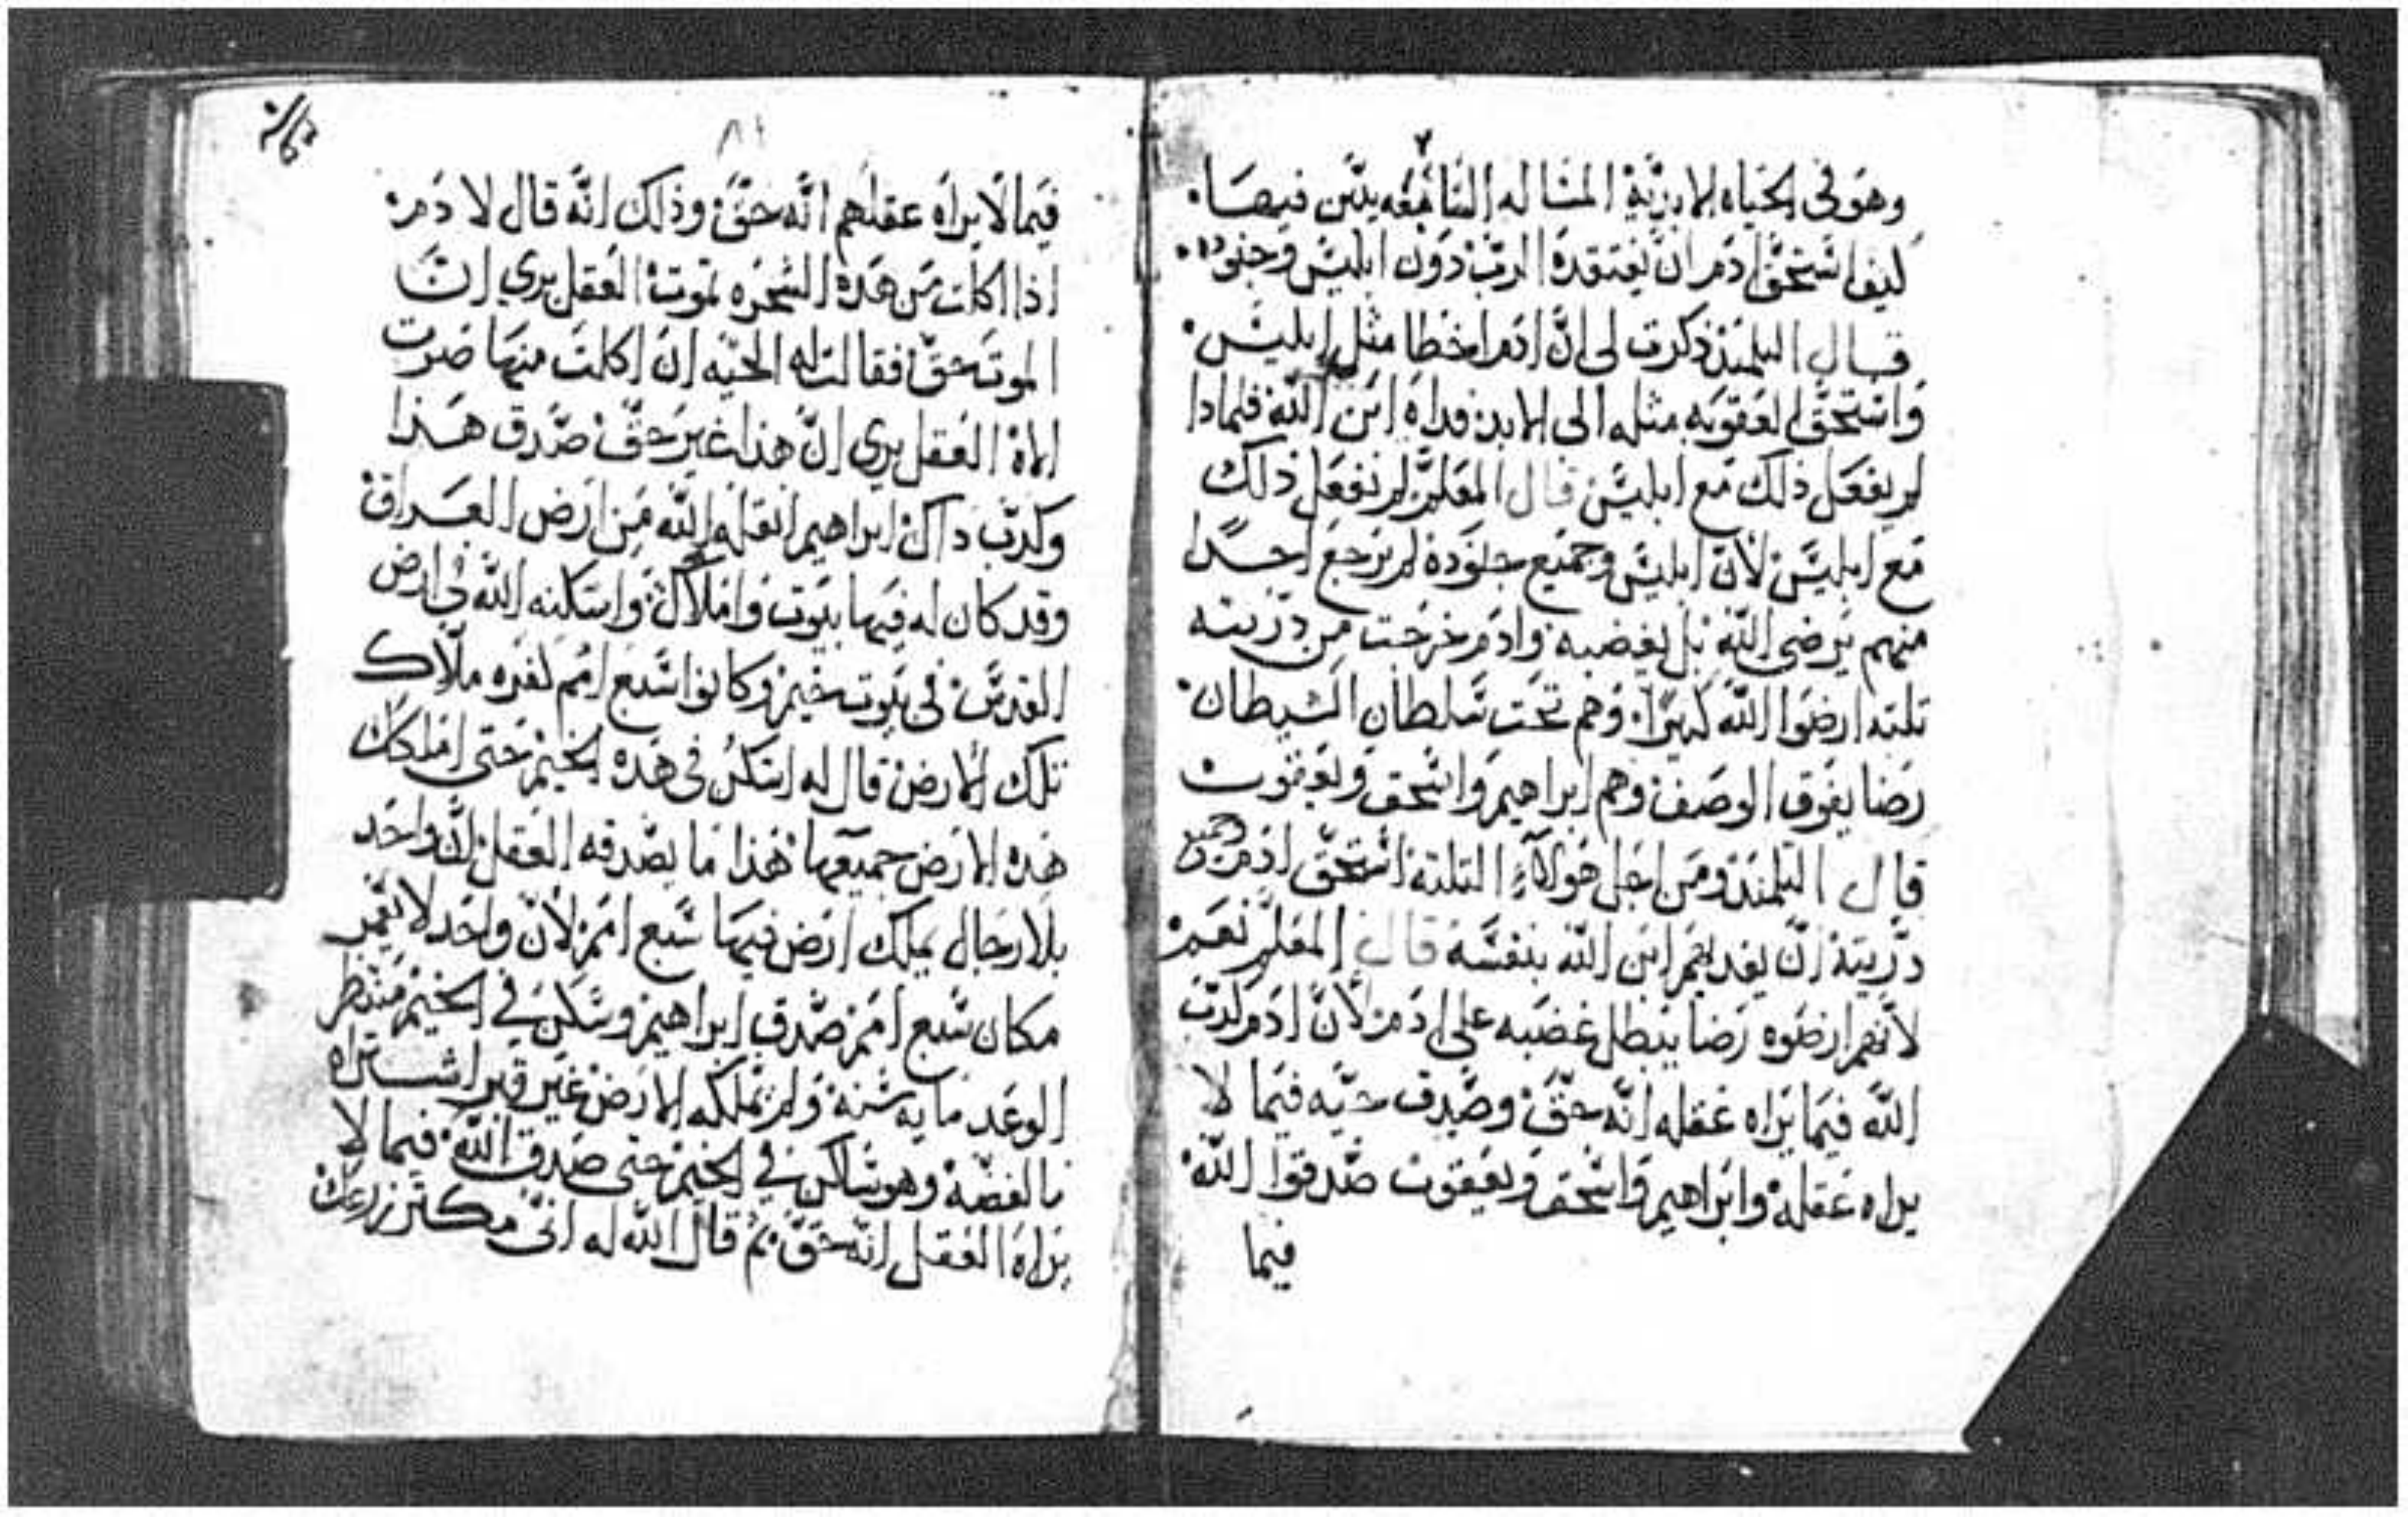 وهو في الحياه الابديّة المساله التاسعه يبيّن فيها.
كيف استحق ادم ان يفتقده الرب دون ابليس وجنوده.
قال التلميذ ذكرت لي انّ ادم اخطا مثل ابليس.
واستحق العقوبه مثله الى الابد فداه ابن اللّه فلماذا
لم يفعل ذلك مع ابليس قال المعلّم لم يفعل ذلك
مع ابليس لان ابليس وجميع جنوده لم يرجع احدًا
منهم يرضي اللّه بل يغضبه وادم خرجت من ذريته
تلته ارضوا اللّه كتيرًا وهم تحت سلطان الشيطان.
رضا يفوق الوصف وهم ابراهيم واسحق ويعقوب
قال التلميذ ومن اجل هولآء التلتة استحق ادم وجميع
ذريته ان يفديهم ابن اللّه بنفسه قال المعلّم نعم
لانهم ارضوه رضا يبطل غضبه على ادم لانّ ادم كدّب
اللّه فيما يراه عقله انّه حقّ وصدق حيّه فيما لا
يراه عقله وابراهيم واسحق ويعقوب صدقوا اللّه
فيما
٨١
فيما لا يراه عقلهم انّه حقّ وذلك انّه قال لادم
اذا اكلت من هذه الشجره تموت العقل يري انّ
الموت حقّ فقالت له الحيّه ان اكلت منها صرت
الاه العقل يري انّ هذا غير حقّ صدّق هذا
وكدّب داك ابراهيم انقله اللّه من ارض العراق
وقد كان له فيها بيوت واملاك واسكنه اللّه في ارض
القدس في بيوت خيم وكانوا سبع امم كفره ملّاك
تلك الارض قال له اسكن في هذه الخيم حتى املكك
هذه الارض جميعها هذا ما يصدقه العقل انّ واحد
بلا رجال يملك ارض فيها سبع امم لانّ واحد لا يقيم
مكان سبع امم صدّق ابراهيم وسكن في الخيم منتظر
الوعد مايه سنة ولم يملكه الارض غير قبر اشتراه
بالفضّة وهو ساكن في الخيم حتى صدق اللّه فيما لا
يراه العقل انّه حقّ تم قال اللّه له انّي مكتر زرعك